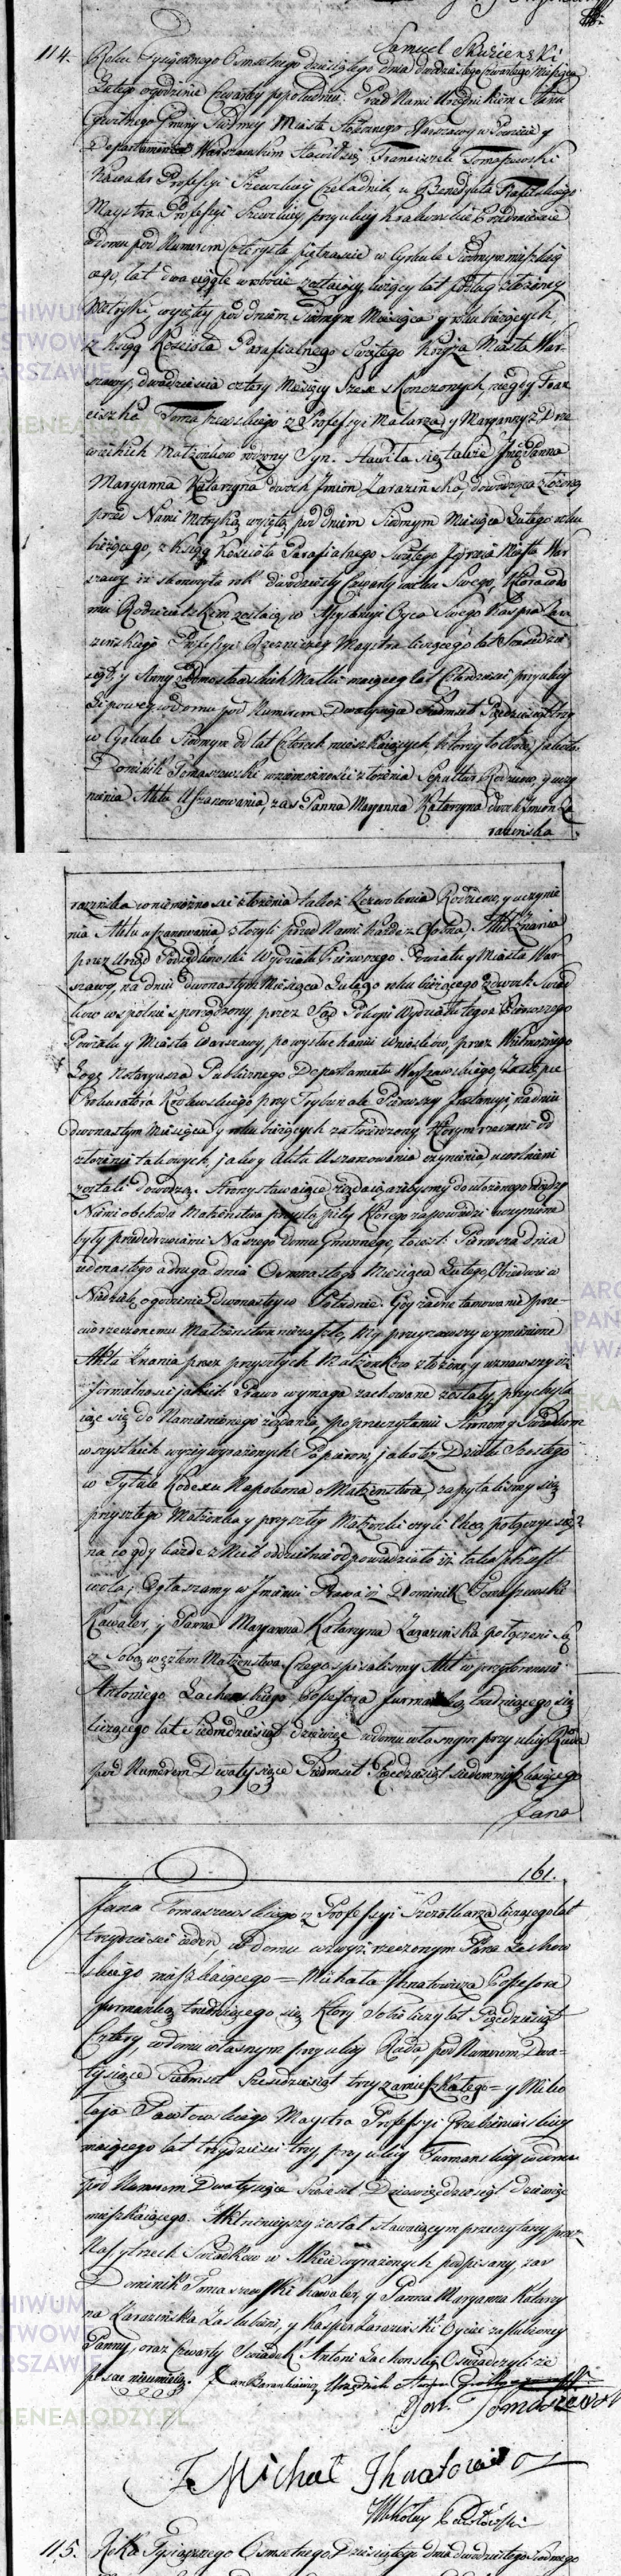 Samuel Skwierski
114. Roku Tysiącznego Osmsetnego dziesiątego dnia dwudziestego czwartego Miesiąca
Lutego o godzinie Czwartey popołudniu. Przed Nami Urzędnikiem Stanu
Cywilnego Gminy Miasta Stołecznego Warszawy w Powiecie y
Departamencie Warszawskim stawił się Franciszek Tomaszewski
Kawaler Professyi Szewckiey Czeladnik u Benedykta
Maystra Professyi Szewckiey przy ulicy Krakowskie Przedmieście
w domu pod Numerem Czterysta piętnaście w Cyrkule Siodmym mieszkaią
cego, lat dwa ciągle w robocie zostaiący, liczący lat podług złożoney
Metryki, wyiętey pod dniem Siodmym Miesiąca y roku bieżących
z Ksiąg Kościoła Parafialnego Swiętego Krzyża Miasta War-
szawy, dwadzieścia cztery Miesięcy Sześć skończonych, niegdy Fran
ciszka Tomaszewskiego z Professyi Malarza y Maryanny z Drze
wieckich Małżonków Syn. Stawiła się także Panna
Maryanna Katarzyna dwoch Imion Zarazińska, dowodząca złożoną
przed Nami Metryką wyiętą pod dniem Siodmym Miesiąca Lutego roku
bieżącego, z Ksiąg Kościoła Parafialnego Swiętego Miasta War
szawy iż skończyła rok dwudziesty Czwarty wieku Swego, Która w do
mu Rodzicielskim zostaiąc, w Assystencyi Oyca Swego Kaspra Zara
zińskiego Professyi Rzezniczey Maystra liczącego lat
y Anny z Domosławskich Matki maiącey lat Czterdzieści przy ulicy
Lipowey w domu pod Numerem Dwatysiące Siedmset Pięćdziesiąt trzy
w Cyrkule Siodmym od lat Czterech mieszkaiących, którzy to
Dominik Tomaszewski w niemożności złożenia Sepultur Rodziców, y uczy
nienia Aktu Uszanowania, zaś Panna Maryanna Katarzyna dwoch Imion Za
razińska
razińska w niemożności złożenia takoż zezwolenia Rodziców, y uczynie
nia Aktu uszanowania złożyli przed Nami każde z Osobna Akt Znania
przez Urząd Podsędkowski Wydziału Pierwszego Powiatu y Miasta War-
szawy, na dniu dwunastym Miesiąca Lutego roku bieżącego z dwoch Swiad
kow wspólnie sporządzony, przez Sąd Pokoju Wydziału tegoż Pierwszego
Powiatu y Miasta Warszawy, po wysłuchaniu wniosków, przez Wielmożnego
Łozę Notaryusza Publicznego Departamentu Warszawskiego, Zastępcę
Prokuratora Krolewskiego przy Trybunale Pierwszey Instancyi, na dniu
dwunastym Miesiąca y roku bieżących zatwierdzony, Którym rzeczeni od
złożenia takowych, jako y Aktu Uszanowania czynienia uwolnieni
zostali dowodzą. Strony stawaiące żądaią ażebyśmy do ułożonego między
Niemi obchodu Małżeństwa przystąpili, Którego zapowiedzi uczynione
były przededrzwiami Naszego domu Gminnego, to iest: Pierwsza dnia
iedenastego a druga dnia Osmnastego Miesiąca Lutego, Obiedwie w
Niedzielę o godzinie dwunastey w Południe. Gdy żadne tamowanie rze-
czonemu Małżeństwu nie zaszło, My przeyrzawszy wymienione
Akta Znania przez przyszłych Małżonków złożone, y uznawszy iż
formalności jakich Prawo wymaga zachowane zostały, przychyla
iąc się do Namienionego żądania, po przeczytaniu Stronom y Swiadkom
wszystkich wyżey wyrażonych Papierów, jako też Działu Szostego
w Tytule Kodexu Napoleona o Małżeństwie, zapytaliśmy się
przyszłego Małżonka y przyszłey Małżonki czyli Chcą połączyć się?
na co gdy każde z Nich oddzielnie odpowiedziało iż taka jest ich
wola; Ogłaszamy w Imieniu Prawa iż Dominik Tomaszewski
Kawaler, y Panna Maryanna Katarzyna Zarazińska połączeni są
z Sobą węzłem Małżeństwa. Czego spisaliśmy Akt w przytomności
Antoniego Lachowskiego Possesora furmanką trudniącego się
liczącego lat Siedmdziesiąt dziewięć w domu własnym przy ulicy Rada
pod Numerem Dwatysiące Siedmset Pięćdziesiąt Siedem mieszkaiącego
Jana
161.
Jana Tomaszewskiego z Professyi Szczotkarza liczącego lat
trzydzieści ieden, w domu wzwyż rzeczonym Pana Lachow
skiego mieszkaiącego = Michała Ihnatowicza Possesora
furmanką trudniącego się, Który Sobie liczy lat Pięćdziesiąt
Cztery, w domu własnym przy ulicy Rada, pod Numerem Dwa-
tysiące Siedmset Sześćdziesiąt trzy zamieszkałego = y Miko
łaja Pawłowskiego Maystra Professyi Grzebieniarskiey
maiącego lat trzydzieści trzy, przy ulicy Furmanskiey w domu
pod Numerem Dwatysiące Sześćset Dziewięćdziesiąt dziewięć
mieszkaiącego. Akt ninieyszy został stawaiącym przeczytany przez
Nas y trzech Swiadków w Akcie wyrażonych podpisany, zaś
Dominik Tomaszewski Kawaler, y Panna Maryanna Katarzy
na Zarazińska Zaślubieni, y Kasper Zaraziński Oyciec zaślubioney
Panny, oraz Czwarty Swiadek Antoni Lachowski Oświadczyli iż
pisać nieumieią.
Jan Tomaszewski
Michał Ihnatowicz
Mikołay Pawłowski
115. Roku Tysiącznego Osmsetnego Dziesiątego dnia dwudziestego siodmego